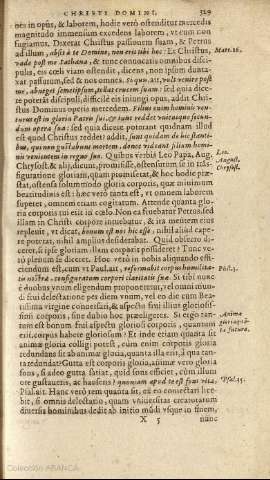 CHRISTI DOMINI. 329
nes in opus, & laborem, hodie verò ostenditur mercedis
magnitudo immensum excedens laborem, vt eum non
fugiamus. Dixerat Christus passionem suam, & Petrus
ad illum, absit à te Domine, non erit tibi hoc: Et Christus, Mat. 16.
vade post me Sathana, & tunc conuocatis omnibus discipulis,
eis cœli viam ostendit, dicens, non ipsum
pati passurum, sed & nos omnes. Si quis, ait, vult venire post
me, abneget semetipsum, tollat crucem suam: sed quia dicere
poterat discipuli, difficile est iniungi opus, addit Christus
Dominus operis mercedem. Filius enim hominis venturus
est in gloria Patris sui, & tunc reddet vnicuique secundum
opera sua: sed quia dicere poterant quidnam illud
est quod Christus reddet addit, sunt quidam de hic stantibus,
qui non gustabunt mortem, donec videant filium hominis
venientem in regno suo. Quibus verbis Leo Papa, Aug. Leo.
Chrysost. & alij, dicunt, promisisse, ostensurum se in transfiguratione August.
gloriam, quam promiserat, & hoc hodie præstat, Chrysost.
ostensa solummodo gloria corporis, quæ minimum
beatitudinis est: hæc verò tanta est, vt omnem laborem
superet, omnem etiam cogitatum. Attende quanta gloria
corporis tui erit in cœlo. Non ea fruebatur Petrus, sed
illam in Christi corpore intuebatur, & ita mentem eius
repleuit, vt dicat, bonum est nos hic esse, nihil aliud capere
poterat, nihil amplius desiderabat. Quid obsecro diceret,
si ipse gloriam illam corporis possideret? Tunc verò
plenum se diceret. Hoc verò in nobis aliquando efficiendum
est, cum vt Paul. ait, reformabit corpus humilitatis Phil. 3.
nostræ, configuratum corpori claritatis suæ. Si tibi nunc
è duobus vnum eligendum proponeretur, vel omni mundi
frui delectatione per diem vnum, vel eo die cum Beatissima
virgine conuersari, & aspectu frui illius gloriosissimi
corporis, sine dubio hoc præeligeres. Si ergo tantum
est bonum frui aspectu gloriosi corporis, quantum Anima
erit, corpus habere gloriosum? Et inde etiam quanta sit gloria quanta
animæ gloria colligi potest, cum enim corporis gloria futura.
redundans sit ab animæ gloria, quanta illa erit, à qua tanta
redundat? Gutta est corporis gloria, animæ verò gloria
fons, si adeo gutta satiat, quid fons efficiet, cùm illum
ore gustaueris, ac hauseris? quoniam apud te est fons vitæ, Psal. 35.
Psal. ait. Hanc verò rem quanta sit, ex eo coniectari licebit,
si omnis delectatio, quam vniuersitas creaturarum
diuersis hominibus dedit ab initio mundi vsque in finem,
X 5 nunc
Colección ABANCA